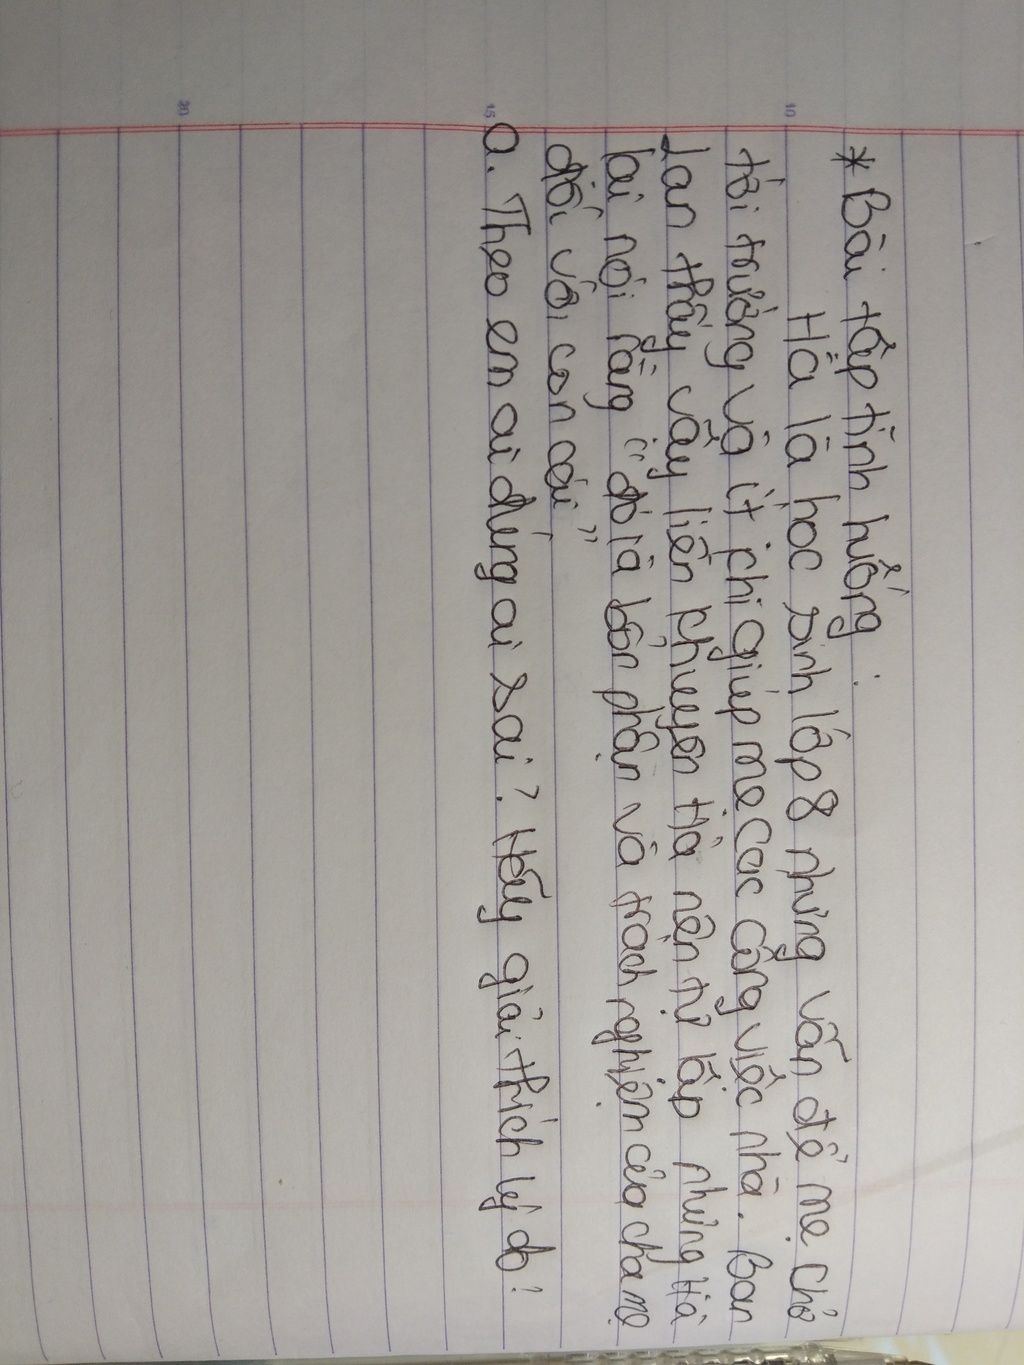 * Bài tập tình huống:
Hà là học sinh lớp 8 nhưng vẫn để mẹ chở
tới trường và ít phi giúp mẹ các công việc nhà. Bạn
Lan thấy vậy liền khuyên Hà nên tự lập nhưng Hà
lại nói rằng "đó là bổn phận và trách nghiệm của cha mẹ
đối với con cái"
a. Theo em ai đúng ai sai? Hãy giải thích lý do!
10
15
20